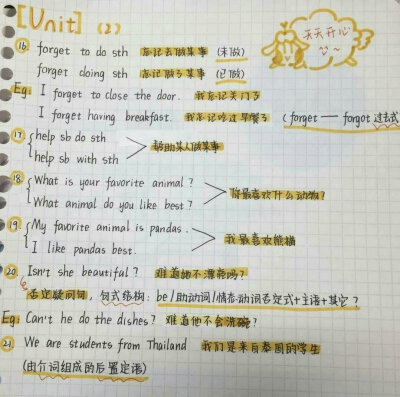 [Unit] (2)
天天开心
⑯ forget to do sth 忘记去做某事 (未做)
forget doing sth 忘记做了某事 (已做)
Eg: I forget to close the door. 我忘记关门了
I forget having breakfast. 我忘记吃过早餐了 (forget — forgot 过去式
⑰ help sb do sth
help sb with sth
帮助某人做某事
⑱ What is your favorite animal?
What animal do you like best?
你最喜欢什么动物?
⑲ My favorite animal is pandas.
I like pandas best.
我最喜欢熊猫
⑳ Isn't she beautiful? 难道她不漂亮吗?
否定疑问句, 句式结构: be/助动词/情态动词否定式+主语+其它?
Eg: Can't he do the dishes? 难道他不会洗碗?
㉑ We are students from Thailand 我们是来自泰国的学生
(由介词组成的后置定语)